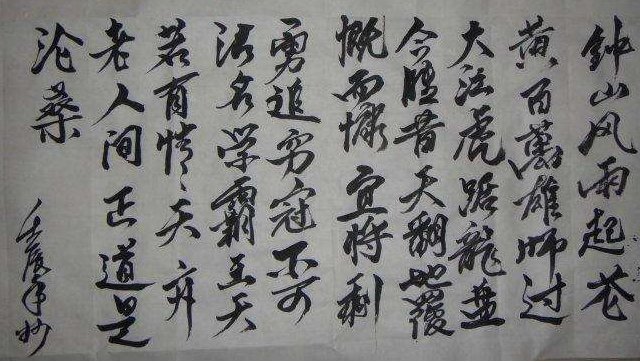 鐘山风雨起苍
黄百萬雄师过
大江虎踞龍盘
今胜昔天翻地覆
慨而慷宜将剩
勇追穷寇不可
沽名学霸王天
若有情天亦
老人间正道是
沧桑
壬辰年抄